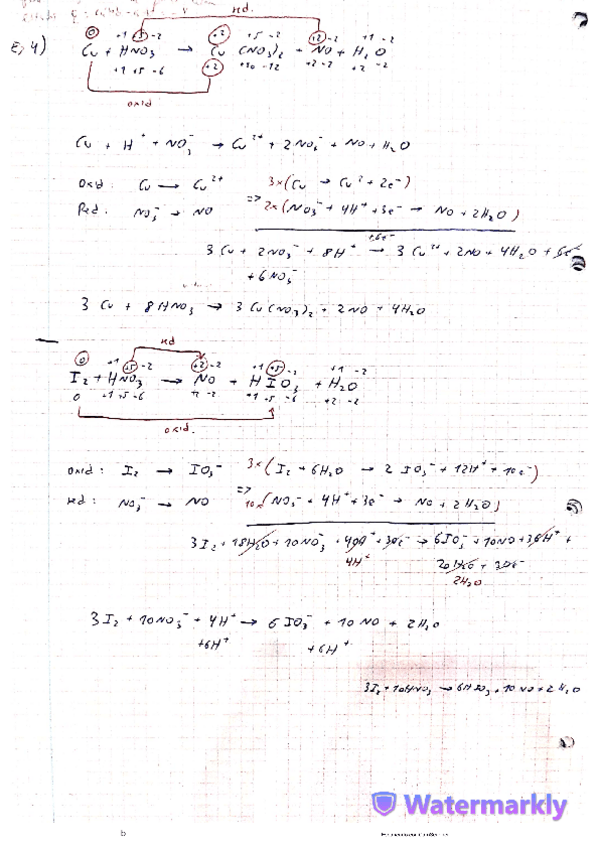 red.
0 +1 +5 -2 +2 +5 -2 +2 -2 +1 -2
E, 4) Cu + HNO₃ → Cu (NO₃)₂ + NO + H₂O
+1 +5 -6 +2 +10 -12 +2 -2 +2 -2
oxid
Cu + H⁺ + NO₃⁻ → Cu²⁺ + 2NO₃⁻ + NO + H₂O
Oxid: Cu → Cu²⁺ 3x(Cu → Cu² + 2e⁻)
Red: NO₃⁻ → NO => 2x(NO₃⁻ + 4H⁺ + 3e⁻ → NO + 2H₂O)
+6e⁻
3 Cu + 2NO₃⁻ + 8H⁺ → 3 Cu²⁺ + 2NO + 4H₂O + 6e⁻
+ 6NO₃⁻
3 Cu + 8HNO₃ → 3 Cu(NO₃)₂ + 2NO + 4H₂O
red
0 +1 +5 -2 +2 -2 +1 +5 -2 +1 -2
I₂ + HNO₃ → NO + HIO₃ + H₂O
0 +1 +5 -6 +2 -2 +1 +5 -6 +2 -2
oxid.
oxid: I₂ → IO₃⁻ 3x(I₂ + 6H₂O → 2 IO₃⁻ + 12H⁺ + 10e⁻)
red: NO₃⁻ → NO => 10x(NO₃⁻ + 4H⁺ + 3e⁻ → NO + 2H₂O)
3I₂ + 18H₂O + 10NO₃⁻ + 40H⁺ + 30e⁻ → 6IO₃⁻ + 10NO + 36H⁺ +
4H⁺ 20H₂O + 30e⁻
2H₂O
3I₂ + 10NO₃⁻ + 4H⁺ → 6 IO₃⁻ + 10 NO + 2H₂O
+6H⁺ +6H⁺
3I₂ + 10HNO₃ → 6HIO₃ + 10NO + 2H₂O
Watermarkly